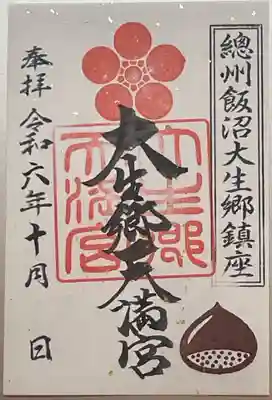 總州飯沼大生郷鎮座
大生郷天満宮
大生郷
天満宮
奉拝 令和六年十月 日